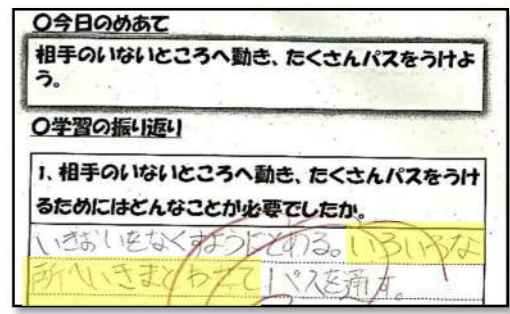 〇今日のめあて
相手のいないところへ動き、たくさんパスをうけよ
う。
〇学習の振り返り
1、相手のいないところへ動き、たくさんパスをうけ
るためにはどんなことが必要でしたか。
いきおいをなくすようにとめる。いろいろな
所へいきまとわせて パスを通す。